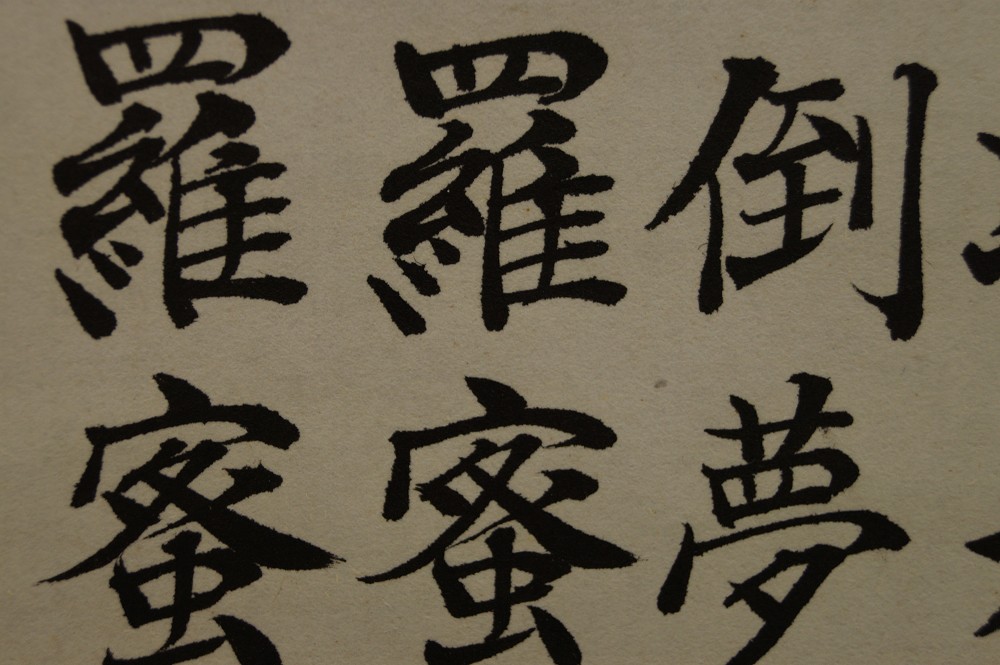 倒夢
羅蜜
羅蜜